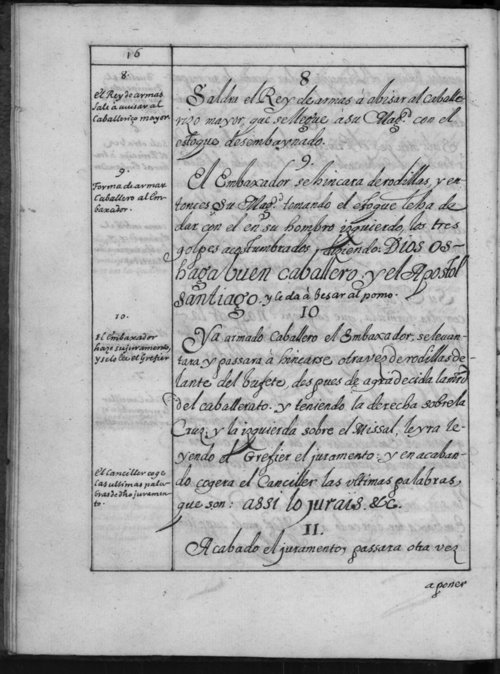 16
8.
El Rey de armas
sale à avisar al
Caballerizo mayor.
8
Saldra el Rey de armas à abisar al Caballe-
rizo mayor, que se llegue a su Mag.d con el
estoque desembaynado.
9.
Forma de armar
Caballero al Em-
baxador.
9.
El Embaxador, se hincara de rodillas, y en-
tonces su Mag.d tomando el estoque le ha de
dar con el en su hombro izquierdo, los tres
golpes acostumbrados, diciendo: DIOS OS-
haga buen caballero, y el Apostol
santiago. y le da à besar al pomo.
10.
El Embaxador
haze su juramento,
y se lo lee el Grefier
10
Ya armado Caballero el Embaxador, se levan-
tara y passara à hincarse otra vez de rodillas de-
lante del bufete, despues de agradecida la mrd
del caballerato: y teniendo la derecha sobre la
Cruz, y la izquierda sobre el Missal, le yra le-
yendo el Grefier el juramento: y en acaban-
do cogera el Canciller las ultimas palabras,
que son: assi lo jurais. &c.
El Canciller coge
las ultimas pala-
bras de dho juramen-
to.
11.
Acabado el juramento, passara otra vez
a poner